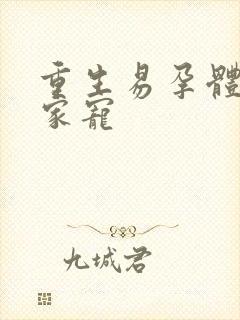 重生易孕體
家寵
九城君